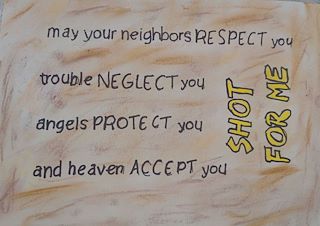 may your neighbors RESPECT you
trouble NEGLECT you
angels PROTECT you
and heaven ACCEPT you
SHOT
FOR ME